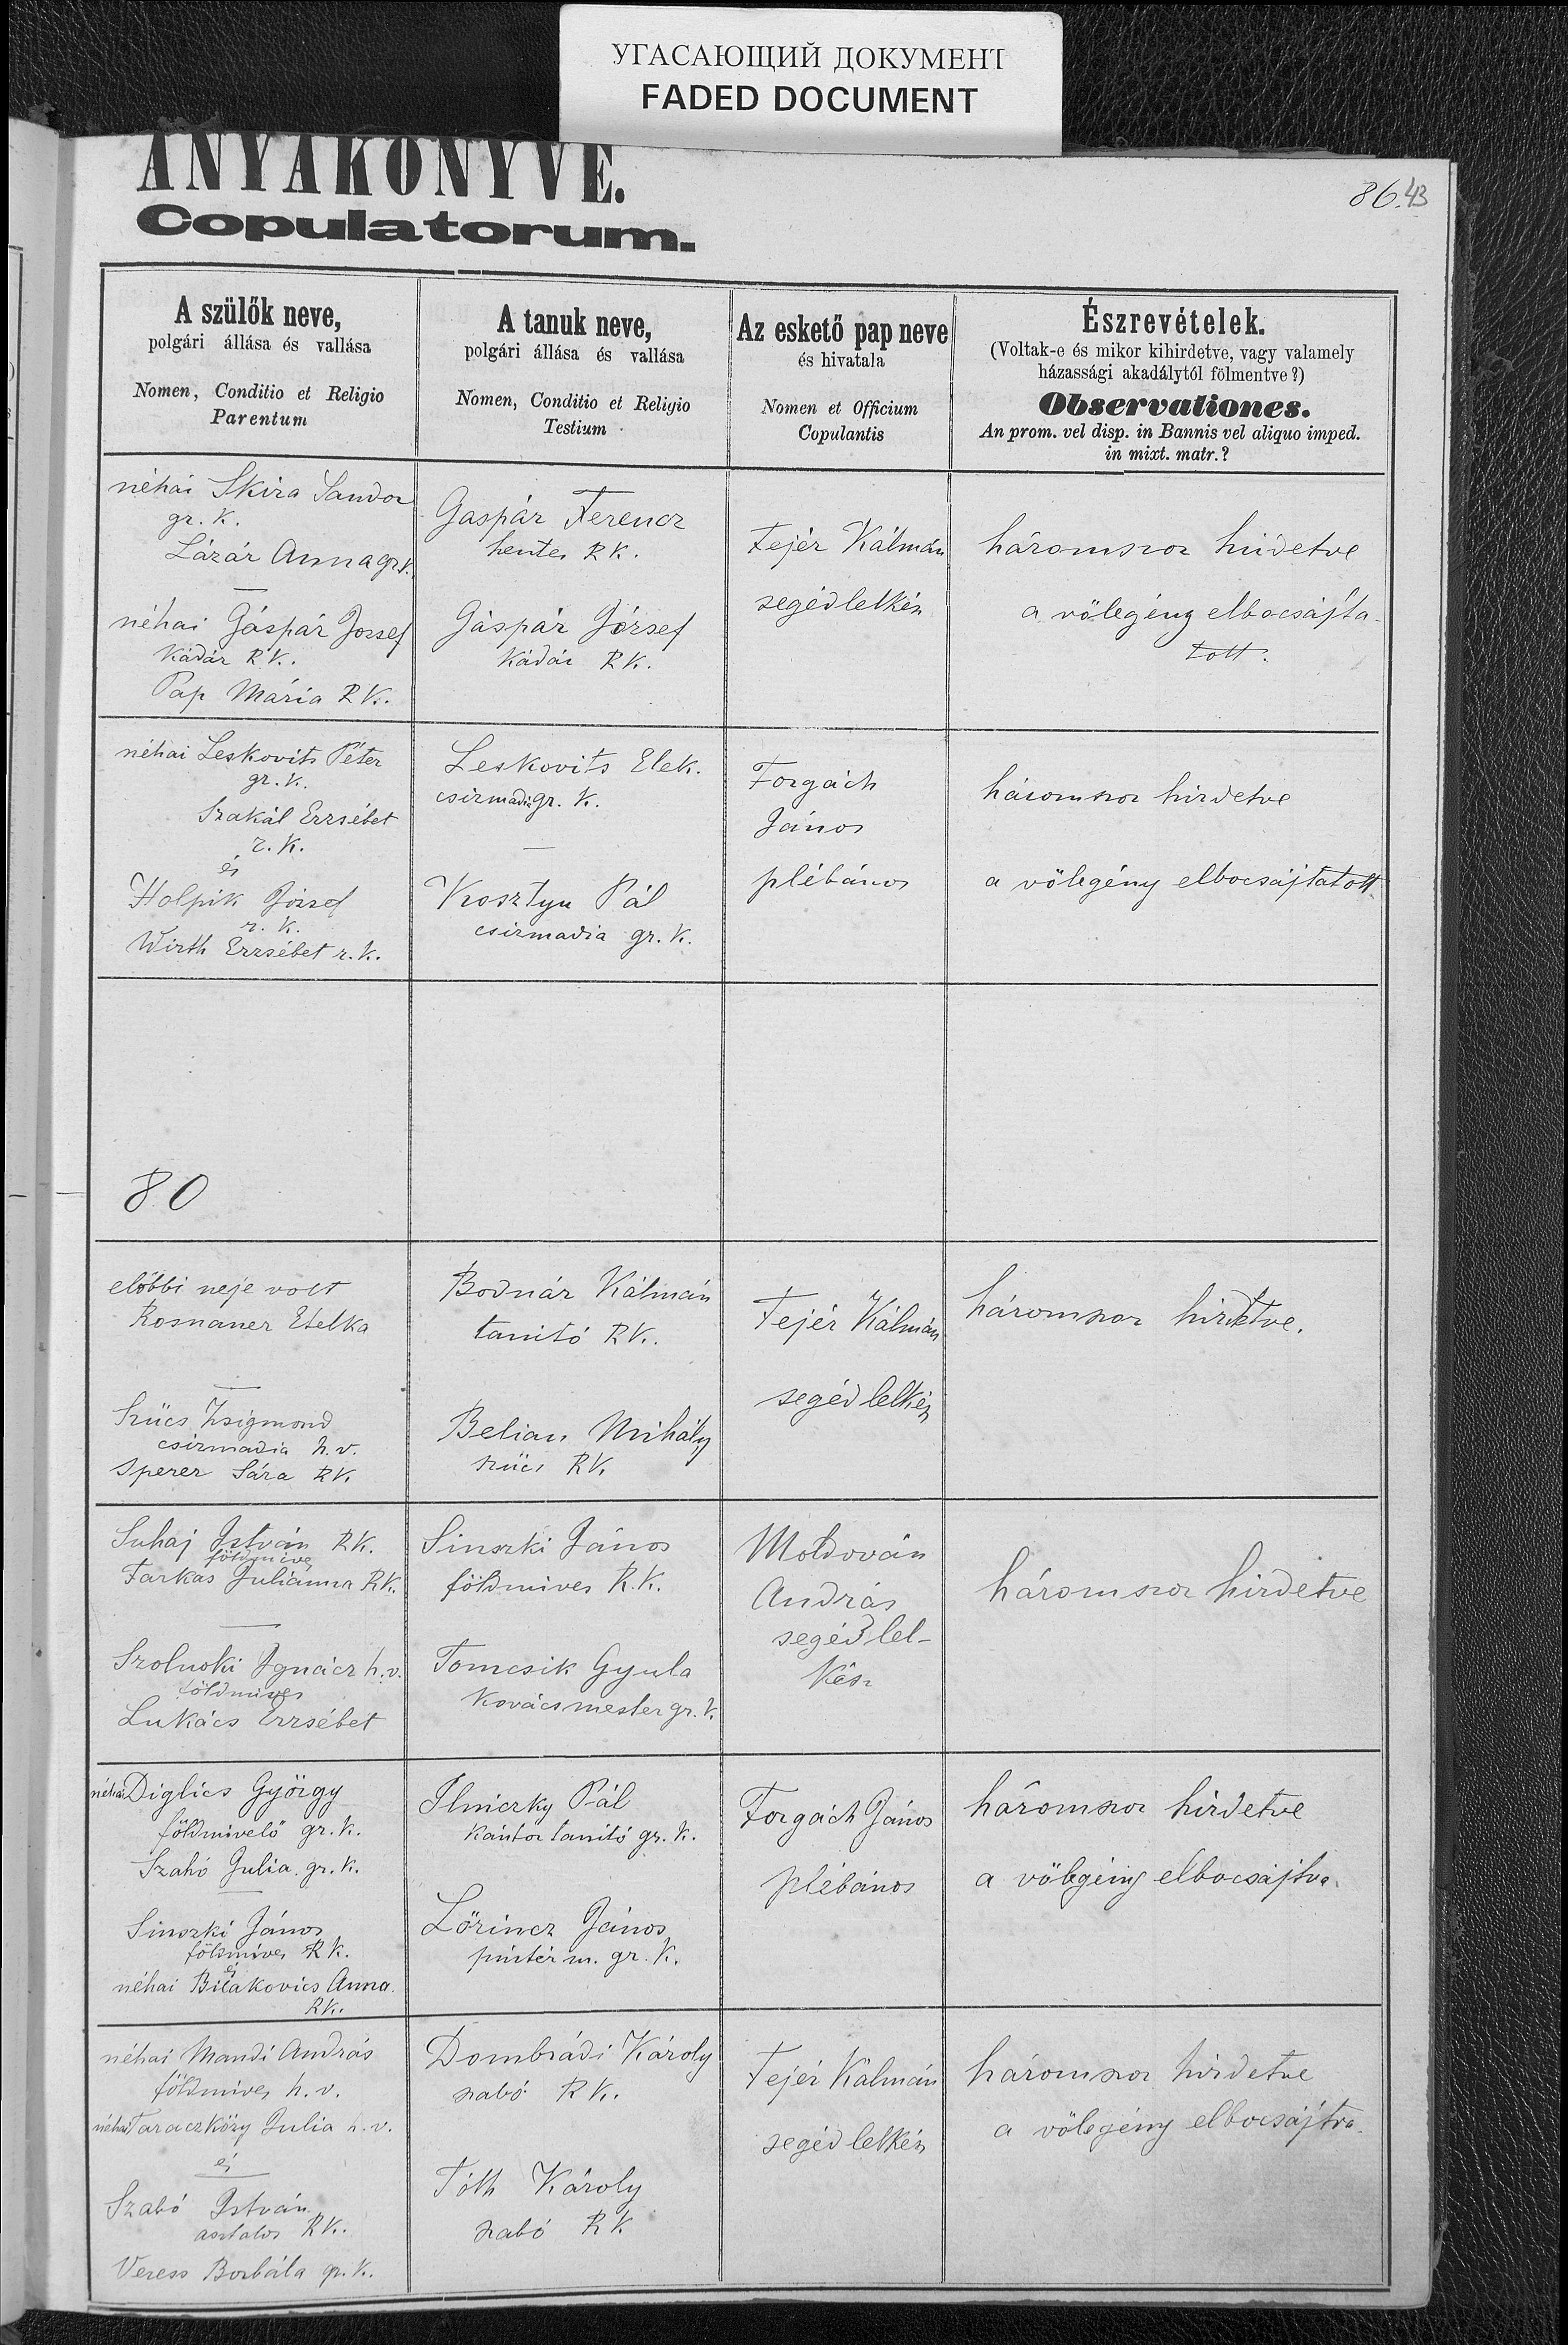 УГАСАЮЩИЙ ДОКУМЕНТ
FADED DOCUMENT
ANYAKÖNYVE.
Copulatorum.
86. 43
A szülők neve,
polgári állása és vallása
Nomen, Conditio et Religio
Parentum
A tanuk neve,
polgári állása és vallása
Nomen, Conditio et Religio
Testium
Az eskető pap neve
és hivatala
Nomen et Officium
Copulantis
Észrevételek.
(Voltak-e és mikor kihirdetve, vagy valamely
házassági akadálytól fölmentve?)
Observationes.
An prom. vel disp. in Bannis vel aliquo imped.
in mixt. matr.?
néhai Skira Sandor
gr. k.
Lázár Anna gr k.
néhai Gáspár Jossef
Kádár R K.
Pap Mária R K.
Gaspár Ferencz
hentes R K.
Gáspár József
Kádár R K.
Fejér Kálmán
segédlelkész
háromszor hirdetve
a völegény elbocsájta-
tott.
néhai Leskovits Péter
gr. k.
Szakál Erzsébet
r. K.
és
Holpik József
r. K.
Wirth Erzsébet r. k.
Leskovits Elek.
csizmadia gr. K.
Kosztyu Pál
csizmadia gr. K.
Forgách
János
plébános
háromszor hirdetve
a völegény elbocsájtatott.
80
előbbi neje volt
Rosnaner Etelka
Szücs Zsigmond
csizmadia h. v.
Sperer Sára R K.
Bodnár Kálmán
tanitó R K.
Belian Mihály
szücs R K.
Fejér Kálmán
segéd lelkész
háromszor hirdetve.
Suhaj István R K.
földmives
Farkas Juliánna R K.
Szolnoki Ignácz h. v.
földmives
Lukács Erzsébet
Sinszki János
földmives R. K.
Tomcsik Gyula
Kovácsmester gr. K.
Moldován
András
segéd lel-
kész
háromszor hirdetve
néhai Diglics György
földmivelő gr. k.
Szabó Julia. gr. K.
Sinszki János
földmives R K.
és
néhai Bilakovics Anna.
R K.
Ilniczky Pál
Kántor tanitó gr. K.
Lőrincz János
pintér m. gr. K.
Forgách János
plébános
háromszor hirdetve
a völegény elbocsájtva.
néhai Mandi András
földmives h. v.
néhai Taraczközy Julia h. v.
és
Szabó István
asztalos R K.
Veress Borbála gr. K.
Dombrádi Károly
szabó R K.
Tóth Károly
szabó R K
Fejér Kálmán
segéd lelkész
háromszor hirdetve
a völegény elbocsájtva.